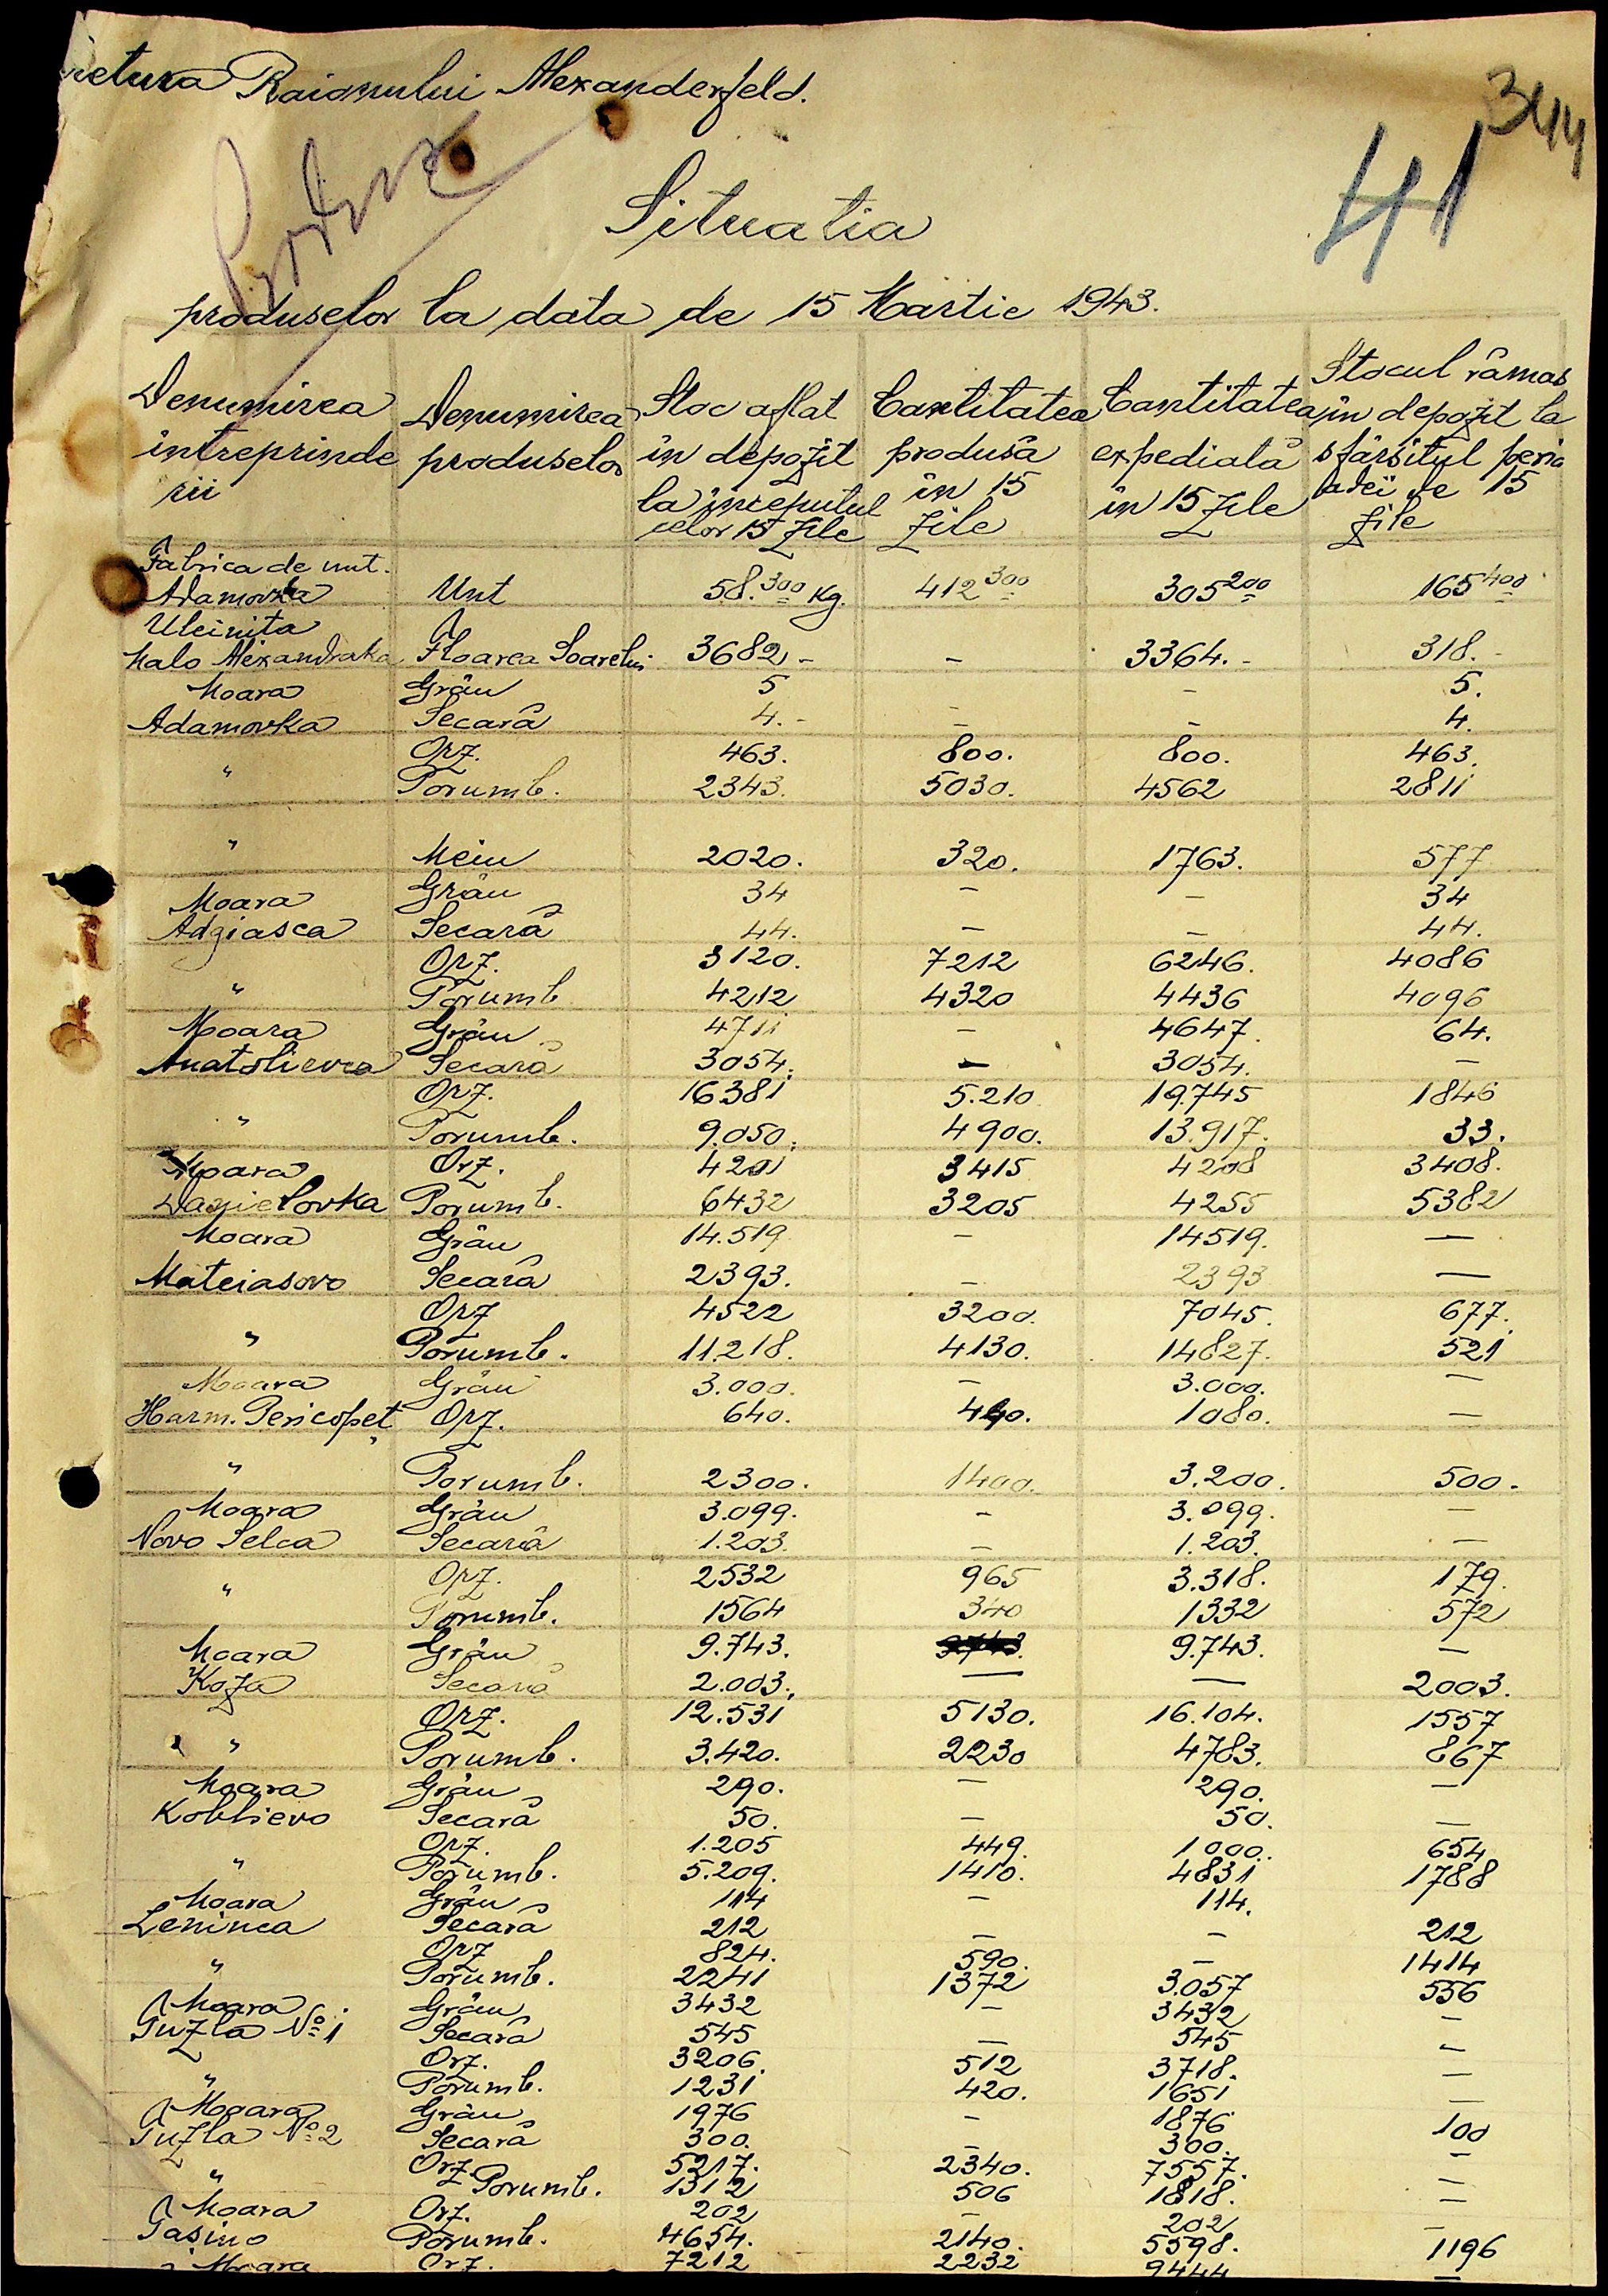 retura Raionului Alexanderfeld.
344
41
Situatia
produselor la data de 15 Martie 1943.
Denumirea intreprinde rii | Denumirea produselor | Stoc aflat in depozit la inceputul celor 15 Zile | Cantitatea produsă in 15 Zile | Cantitatea expediată in 15 Zile | Stocul rămas in depozit la sfârsitul perio adei de 15 zile
Fabrica de unt.
Adamovka | Unt | 58.300 Kg. | 412 300 | 305 200 | 165 400
Uleinita
Malo Alexandrovka | Floarea Soarelui | 3682 - | - | 3364. - | 318. -
Moara | Grâu | 5 | - | - | 5.
Adamovka | Secară | 4. - | - | - | 4.
Orz. | 463. | 800. | 800. | 463.
" | Porumb. | 2343. | 5030. | 4562 | 2811
" | Meiu | 2020. | 320. | 1763. | 577
Moara | Grâu | 34 | - | - | 34
Adgiasca | Secară | 44. | - | - | 44.
Orz. | 3120. | 7212 | 6246. | 4086
" | Porumb | 4212 | 4320 | 4436 | 4096
Moara | Grâu | 4711 | - | 4647. | 64.
Anatolievca | Secară | 3054. | - | 3054. | -
Orz. | 16381 | 5.210 | 19.745 | 1846
" | Porumb. | 9.050. | 4900. | 13.917. | 33.
Moara | Orz. | 4201 | 3415 | 4208 | 3408.
Danielovka | Porumb. | 6432 | 3205 | 4255 | 5382
Moara | Grâu | 14.519 | - | 14519. | -
Mateiasovo | Secară | 2393. | - | 2393 | -
Orz | 4522 | 3200. | 7045. | 677.
" | Porumb. | 11.218. | 4130. | 14827. | 521
Moara | Grâu | 3.000. | - | 3.000. | -
Harm. Pericopet | Orz. | 640. | 440. | 1080. | -
" | Porumb. | 2300. | 1400. | 3.200. | 500.
Moara | Grâu | 3.099. | - | 3.099. | -
Novo Selca | Secară | 1.203. | - | 1.203. | -
Orz. | 2532 | 965 | 3.318. | 179.
" | Porumb. | 1564 | 340 | 1332 | 572
Moara | Grâu | 9.743. | 9743. | 9.743. | -
Koza | Secară | 2.003. | - | - | 2003.
Orz. | 12.531 | 5130. | 16.104. | 1557
" | Porumb. | 3.420. | 2230 | 4783. | 867
Moara | Grâu | 290. | - | 290. | -
Koblievo | Secară | 50. | - | 50. | -
Orz. | 1.205 | 449. | 1000. | 654
" | Porumb. | 5.209. | 1410. | 4831 | 1788
Moara | Grâu | 114 | - | 114.
Leninca | Secară | 212 | - | - | 212
Orz | 824. | 590. | - | 1414
" | Porumb. | 2241 | 1372 | 3.057 | 556
Moara | Grâu | 3432 | - | 3432 | -
Tuzla No 1 | Secară | 545 | - | 545 | -
Orz. | 3206. | 512 | 3718. | -
" | Porumb. | 1231 | 420. | 1651 | -
Moara | Grâu | 1976 | - | 1876 | 100
Tuzla No 2 | Secară | 300. | - | 300. | -
Orz. | 5217. | 2340. | 7557. | -
" | Porumb. | 1312 | 506 | 1818. | -
Moara | Orz. | 202 | - | 202 | -
Tasino | Porumb. | 4654. | 2140. | 5598. | 1196
Moara | Orz. | 7212 | 2232 | 9444 | -